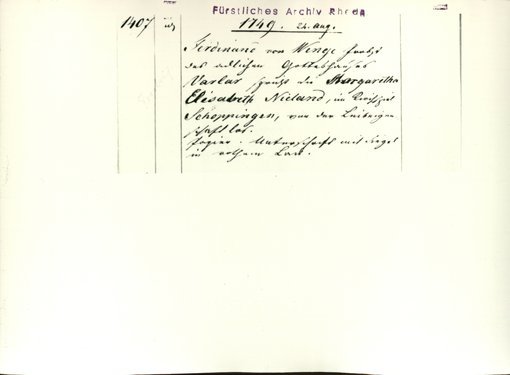 Fürstliches Archiv Rheda
1407
1749. 24. Aug.
Ferdinand von Wenge Probst
des adlichen Gotteshauses
Varlar spricht die Margaretha
Elisabeth Nieland, im Kirchspiel
Schöppingen, von der Leibeigen
schaft los.
Papier. Unterschrift mit Siegel
in rothem Lack.